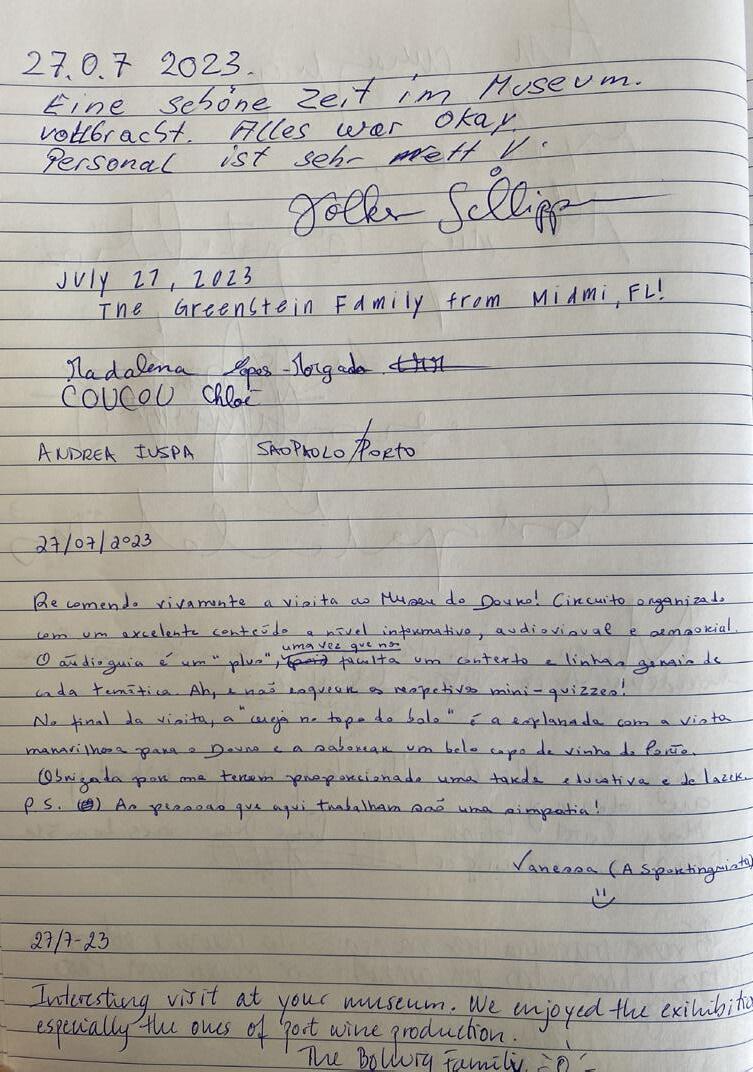 27.0.7 2023.
Eine schöne Zeit im Museum.
vollbracht. Alles war okay.
Personal ist sehr nett V.
Volker
July 27, 2023
The Greenstein Family from Miami, FL!
Madalena Lopes-Morgado
COUCOU Chloé
ANDREA IUSPA SAO PAOLO/PORTO
27/07/2023
Recomendo vivamente a visita ao Museu do Douro! Circuito organizado
com um excelente conteúdo a nível informativo, audiovisual e sensorial.
uma vez que nos
O áudioguia é um "plus", faculta um contexto e linhas gerais de
cada temática. Ah, e não esquecer os respetivos mini-quizzes!
No final da visita, a "cereja no topo do bolo" é a esplanada com a vista
maravilhosa para o Douro e a saborear um belo copo de vinho do Porto.
Obrigada por me terem proporcionado uma tarde educativa e de lazer.
P.S. As pessoas que aqui trabalham são uma simpatia!
Vanessa (A Sportinguista)
27/7-23
Interesting visit at your museum. We enjoyed the exihibitio
especially the ones of port wine production.
The Family